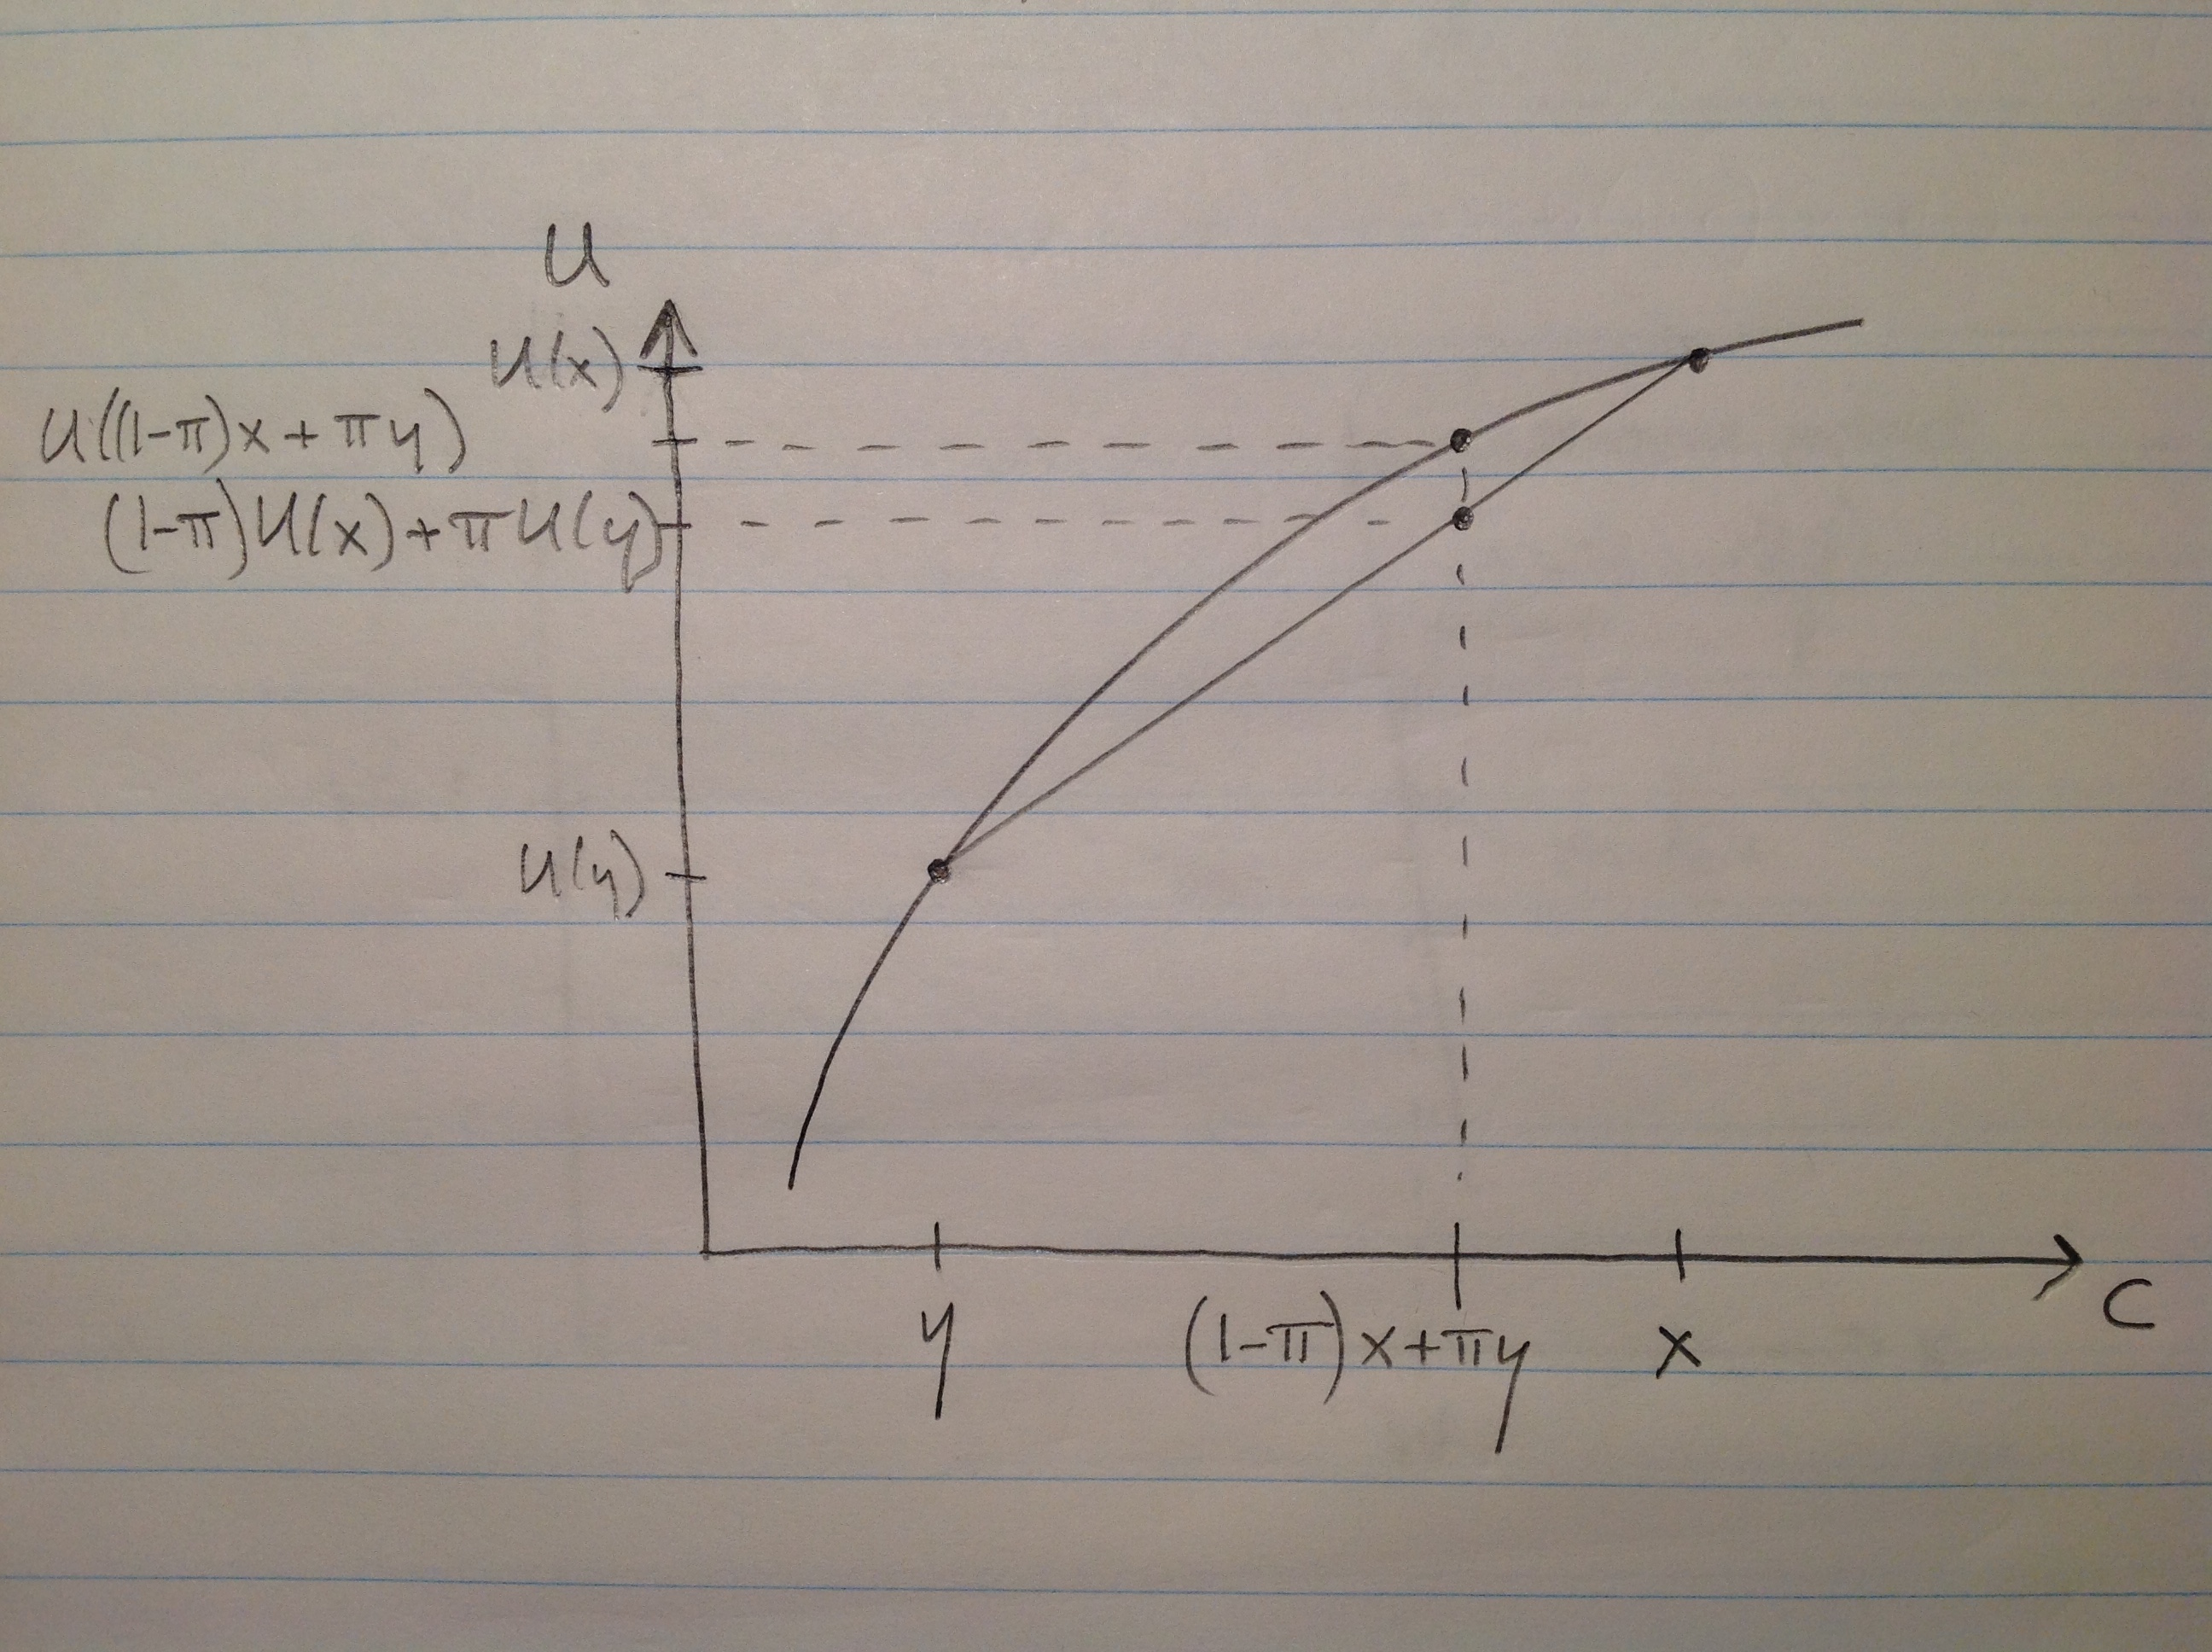 U
U(x)
U((1-π)x+πy)
(1-π)U(x)+πU(y)
U(y)
y (1-π)x+πy x C